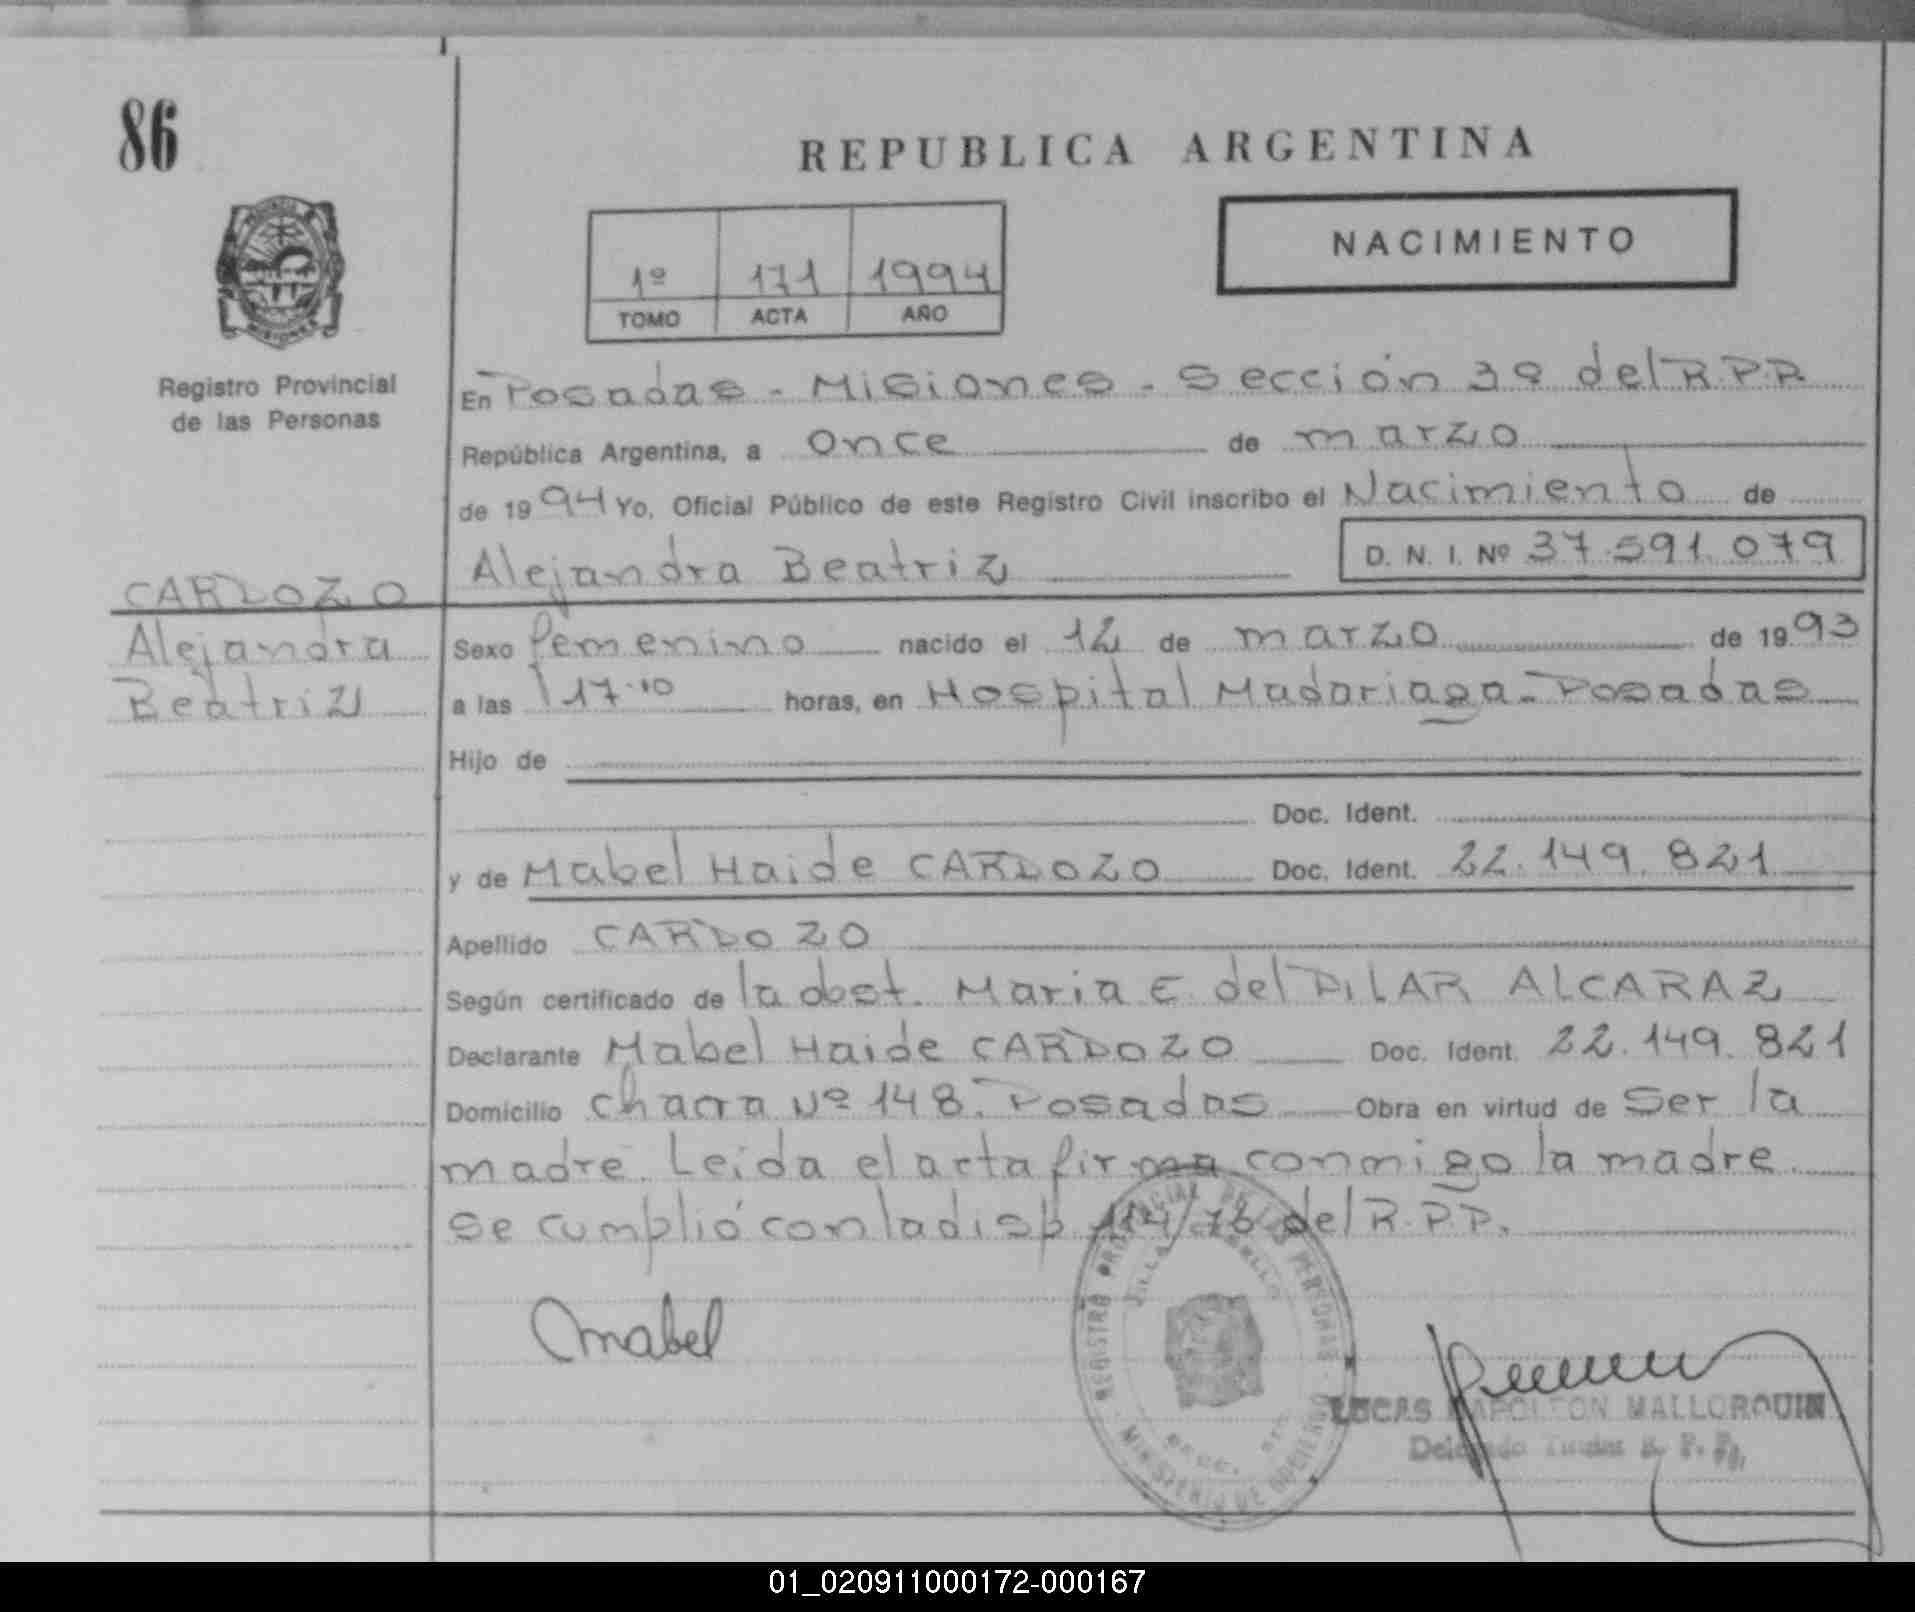 86
REPUBLICA ARGENTINA
NACIMIENTO
1º 171 1994
TOMO ACTA AÑO
Registro Provincial
de las Personas
En Posadas - Misiones - Sección 3º del R.P.P.
República Argentina, a once de marzo
de 1994 Yo, Oficial Público de este Registro Civil inscribo el Nacimiento de
Alejandra Beatriz D. N. I. Nº 37.591.079
CARDOZO
Alejandra
Beatriz
Sexo femenino nacido el 12 de marzo de 1993
a las 17.10 horas, en Hospital Madariaga - Posadas
Hijo de
Doc. Ident.
y de Mabel Haide CARDOZO Doc. Ident. 22.149.821
Apellido CARDOZO
Según certificado de la obst. Maria E del PILAR ALCARAZ
Declarante Mabel Haide CARDOZO Doc. Ident. 22.149.821
Domicilio chacra Nº 148. Posadas Obra en virtud de ser la
madre. Leida el acta firma conmigo la madre.
se cumplió con la disp 114/76 del R.P.P.
Mabel
REGISTRO PROVINCIAL DE LAS PERSONAS
MINISTERIO DE GOBIERNO
LUCAS NAPOLEON MALLORQUIN
Delegado Titular R. P. P.
01_020911000172-000167